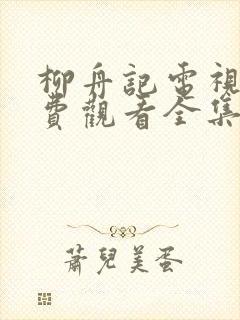 柳舟記電視
費觀看全集
蕭兒美蛋